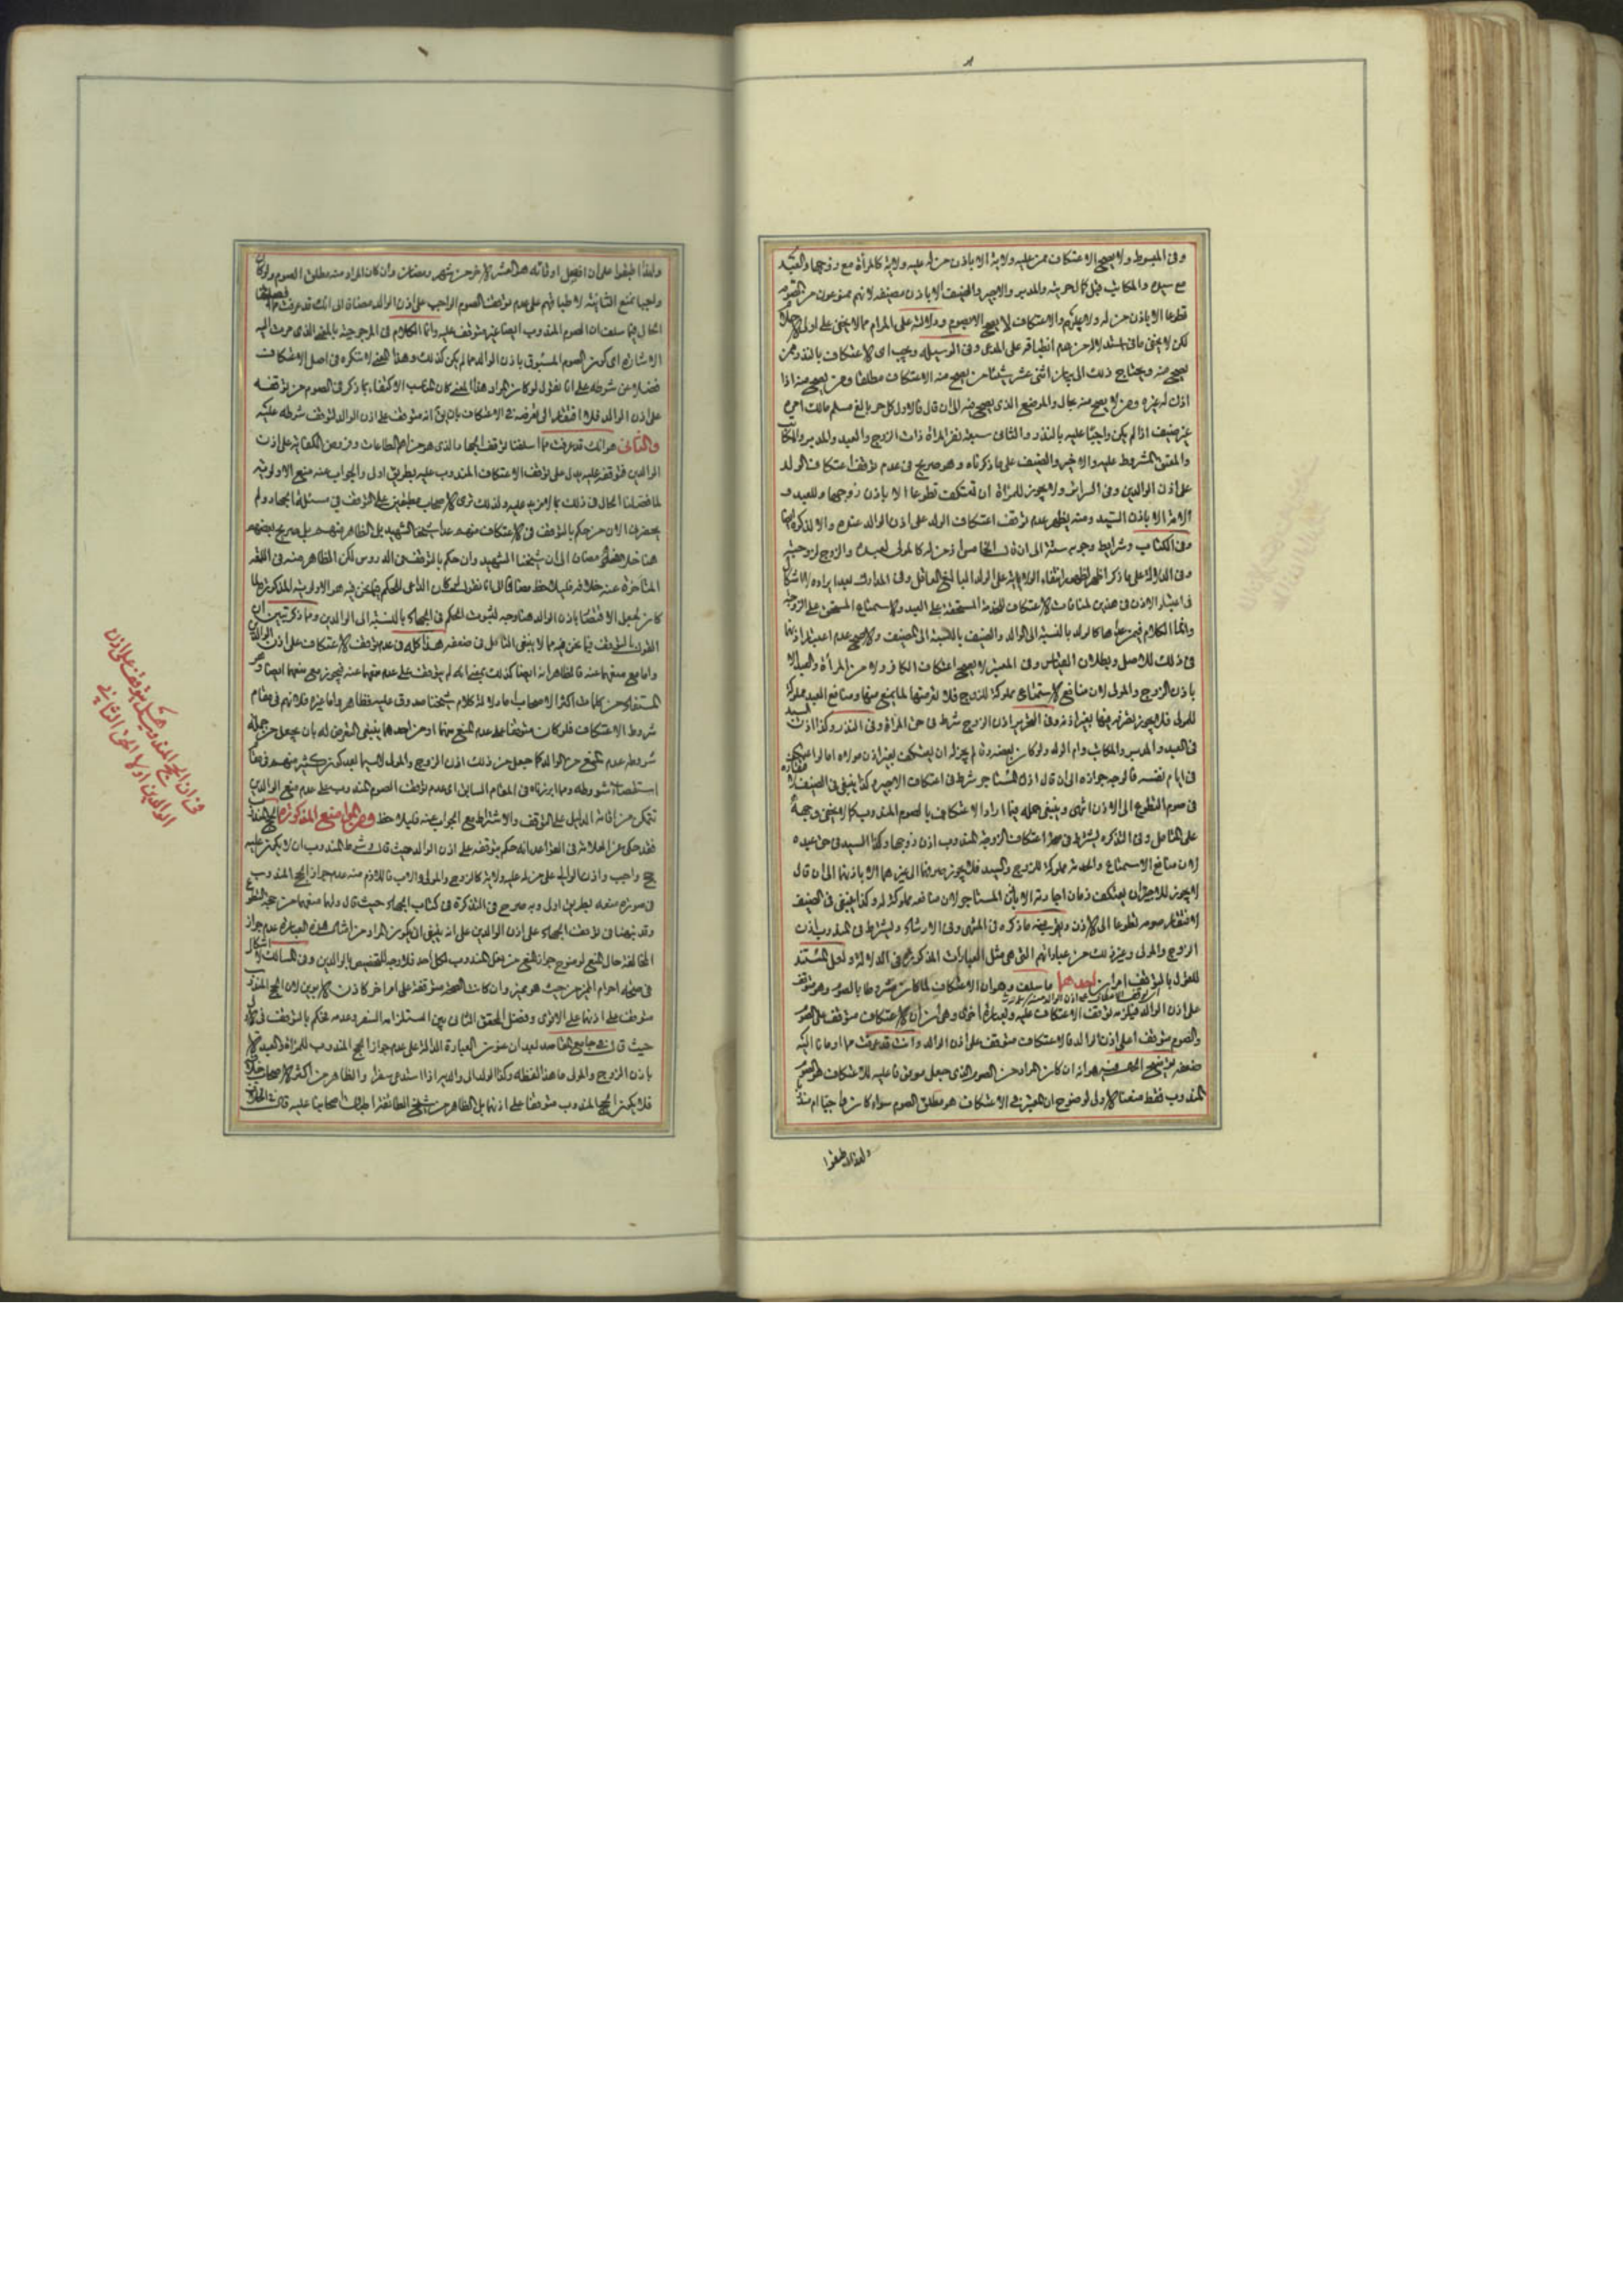 وفى المبسوط ولا يصح الاعتكاف ممن عليه ولاية الا باذن من له عليه ولاية كالمرأة مع زوجها والعبد
مع سيده والمكاتب قبل كمال حريته والمدبر والاجير والضيف الا باذن مضيفه لانهم ممنوعون من الصوم
قطوعا الا باذن من له ولاية عليهم والاعتكاف لا يصح الا بصوم ودلالته على المرام مما لا يخفى على اولى
لكن لا يخفى ما فى من هم انطباقه على المدعى وفى الوسيلة ويجب اى الاعتكاف بالنذر ممن
يصح منه ويحتاج ذلك الى بيان اثنى عشر شيئا من يصح منه الاعتكاف مطلقا ومن يصح منه اذا
اذن له غيره ومن لا يصح منه بحال والموضع الذى يصح فيه الى ان قال فالاول كل حر بالغ مسلم مالك امره
غير ضيف اذا لم يكن واجبا عليه بالنذر والثانى سبعة نفر المرأة ذات الزوج والعبد والمدبر والمكاتب
والمعتق المشروط عليه والاجير والضيف على ما ذكرناه وهو صريح فى عدم توقف اعتكاف الولد
على اذن الوالدين وفى السرائر ولا يجوز للمرأة ان تعتكف تطوعا الا باذن زوجها وللعبد و
الامة الا باذن السيد ومنه يظهر عدم توقف اعتكاف الولد على اذن الوالد عنده والا لذكره ايضا
وفى الكتاب وشرايط وجوبه ستة الى ان قال الخامس اذن من له كالمولى لعبده والزوج لزوجته
وفى المدارك بعد ايراده لا اشكال
فى اعتبار الاذن فى هذين لمنافات الاعتكاف للخدمة المستحقة على العبد والاستمتاع المستحق على الزوجة
وانما الكلام فى غيرهما كالولد بالنسبة الى الوالد والضيف بالنسبة الى المضيف والاصح عدم اعتبار اذنهما
فى ذلك للاصل وبطلان القياس وفى المعتبر لا يصح اعتكاف الكافر ولا من المرأة والعبد الا
باذن الزوج والمولى لان منافع الاستمتاع مملوكة للزوج فلا تعرضها لما يمنع منها ومنافع العبد مملوكة
للمولى فلا يجوز تصرفه فيها بغير اذنه وفى التحرير اذن الزوج شرط فى حق المرأة وفى النذر وكذا اذن السيد
فى العبد والمدبر والمكاتب وام الولد ولو كان بعضه رقا لم يجز له ان يعتكف بغير اذن مولاه اما لو اعتكف
فى ايام نفسه فالوجه جوازه الى ان قال اذن المستاجر شرط فى اعتكاف الاجير وكذا ينبغى فى الضيف
فى صوم التطوع الى الاذن انتهى وينبغى حمله فيما اراد الاعتكاف بالصوم المندوب كما لا يخفى وجهه
على المتامل وفى التذكرة يشترط فى صحة اعتكاف الزوجة المندوب اذن زوجها وكذا السيد فى حق عبده
لان منافع الاستمتاع والخدمة مملوكة للزوج والسيد فلا يجوز صرفها الى غيرهما الا باذنهما الى ان قال
لا يجوز للاجير ان يعتكف زمان اجارته الا باذن المستاجر لان منافعه مملوكة له وكذا ينبغى فى الضيف
لافتقار صومه تطوعا الى الاذن ما ذكره فى المنتهى وفى الارشاد ويشترط فى المندوب اذن
الزوج والمولى وغير ذلك من عباراتهم التى هى مثل العبارات المذكورة فى الدلالة ولعل المستند
للقول بالتوقف امران احدهما ما سلف وهو ان الاعتكاف لما كان مشروطا بالصوم وهو متوقف
على اذن الوالد فيكون توقف الاعتكاف عليه وبعبارة اخرى وهى ان الاعتكاف متوقف على الصوم
والصوم متوقف على اذن الوالد فالاعتكاف متوقف على اذن الوالد وانت قد عرفت مما اومأنا اليه
ضعفه هو انه ان كان المراد من الصوم الذى جعل موقوفا عليه للاعتكاف هو الصوم
المندوب فقط منعنا الاولى لوضوح ان المعتبر فى الاعتكاف هو مطلق الصوم سواء كان واجبا ام مندوبا
ولهذا اطبقوا
ولهذا اطبقوا على ان افضل اوقاته هذا العشر الاخر من شهر رمضان وان كان المراد منه مطلق الصوم ولو كان
واجبا نمنع الثانية لاطباقهم على عدم توقف الصوم الواجب على اذن الوالد مضافا الى انك قد عرفت
الحال فيما سلف ان الصوم المندوب ايضا غير متوقف عليه وانما الكلام فى المرجوحية بالمعنى الذى مرت اليه
الاشارة اى كون الصوم المسبوق باذن الوالد مما لم يكن كذلك وهذا المعنى لا ننكره فى اصل الاعتكاف
فضلا عن شرطه على انا نقول لو كان المراد هذا المعنى كان المناسب الاكتفاء بما ذكر فى الصوم من توقفه
على اذن الوالد فلا افتقار الى تعرضه فى الاعتكاف بان يق انه متوقف على اذن الوالد لتوقف شرطه عليه
والثانى هو انك قد عرفت مما اسلفنا توقف الجهاد الذى هو من اهم الطاعات وفروض الكفاية على اذن
الوالدين فتوقفه عليه يدل على توقف الاعتكاف المندوب عليه بطريق اولى والجواب عنه منع الاولوية
لما فصلنا الحال فى ذلك بما لا مزيد عليه ولذلك ترى الاصحاب مطبقين على التوقف فى مسئلة الجهاد ولم
يحضرنى الان من حكم بالتوقف فى الاعتكاف منهم عدا شيخنا الشهيد بل الظاهر منهم بل صريح بعضهم
هنا خلافه مضافا الى ان شيخنا الشهيد وان حكم بالتوقف فى الدروس لكن الظاهر منه فى اللمعة
المتأخرة عنه خلافه فليلاحظ مضافا الى انا نقول لو كان الداعى للحكم فيما نحن فيه هو الاولوية المذكورة لما
كان لجعل الاقتصار باذن الوالد هنا وجه لثبوت الحكم فى الجهاد بالنسبة الى الوالدين ومما ذكر تبين ان
القول بالتوقف فيما نحن فيه مما لا ينبغى التامل فى ضعفه هذا كله فى عدم توقف الاعتكاف على اذن الوالدين
واما مع منعهما عنه فالظاهر انه ايضا كذلك بمعنى انه لم يتوقف على عدم منعهما عنه فيجوز مع منعهما ايضا وهو
المستفاد من كلمات اكثر الاصحاب اما دلالة كلام شيخنا صدوق عليه فظاهر واما غيره فلانهم فى مقام
شروط الاعتكاف فلو كان متوقفا على عدم المنع منهما او من احدهما ينبغى التعرض له بان يجعل من جملة
شروطه عدم المنع من الوالد كما جعل من ذلك اذن الزوج والمولى لاسيما بعد كون كثير منهم فى مقام
استقصاء شروطه ومما ابرزناه فى المقام السابق اى عدم توقف الصوم المندوب على عدم منع الوالدين
تتمكن من اقامة الدليل على التوقف والاشتراط مع الجواب عنه فليلاحظ ومن المواضع المذكورة الحج المندوب
فقد حكى عن العلامة فى القواعد انه حكم بتوقفه على اذن الوالد حيث قال وشرط المندوب ان لا يكون عليه
حج واجب واذن الوالى على من له عليه ولاية كالزوج والمولى والاب فاللازم منه عدم جواز الحج المندوب
فى صورة منعه بطريق اولى وبه صرح فى التذكرة فى كتاب الجهاد حيث قال ولهما منعهما من حجة التطوع
وقد نبهنا فى توقف الجهاد على اذن الوالدين على انه ينبغى ان يكون المراد من امثال هذه العبارة عدم جواز
المخالفة حال المنع لوضوح جواز المنع من فعل المندوب لكل احد فلا وجه للتخصيص بالوالدين وفى المسالك لا اشكال
فى صحة احرام المميز من حيث هو مميز وان كانت الصحة متوقفة على امر اخر كاذن الابوين لان الحج المندوب
متوقف على اذنهما على الاقوى وفصل المحقق الثانى بين المستلزم السفر وعدمه فحكم بالتوقف فى الاول
حيث قال فى جامع المقاصد بعد ان عنون العبارة الدالة على عدم جواز الحج المندوب للمرأة والعبد الا
باذن الزوج والمولى ما هذا لفظه وكذا الولد الى والديه اذا استدعى سفرا والظاهر من اكثر الاصحاب خلافه
فلا يكون الحج المندوب متوقفا على اذنهما بل الظاهر من شيخ الطائفة اطباق اصحابنا عليه قال فى الخلاف
فى ان الحج المندوب هل يتوقف على اذن
الوالدين او لا الحق الثانى